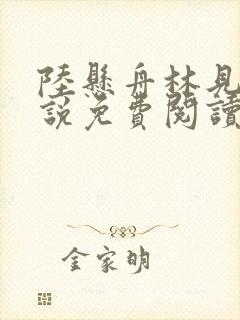 陸懸舟林見
說免費閱讀
金家明